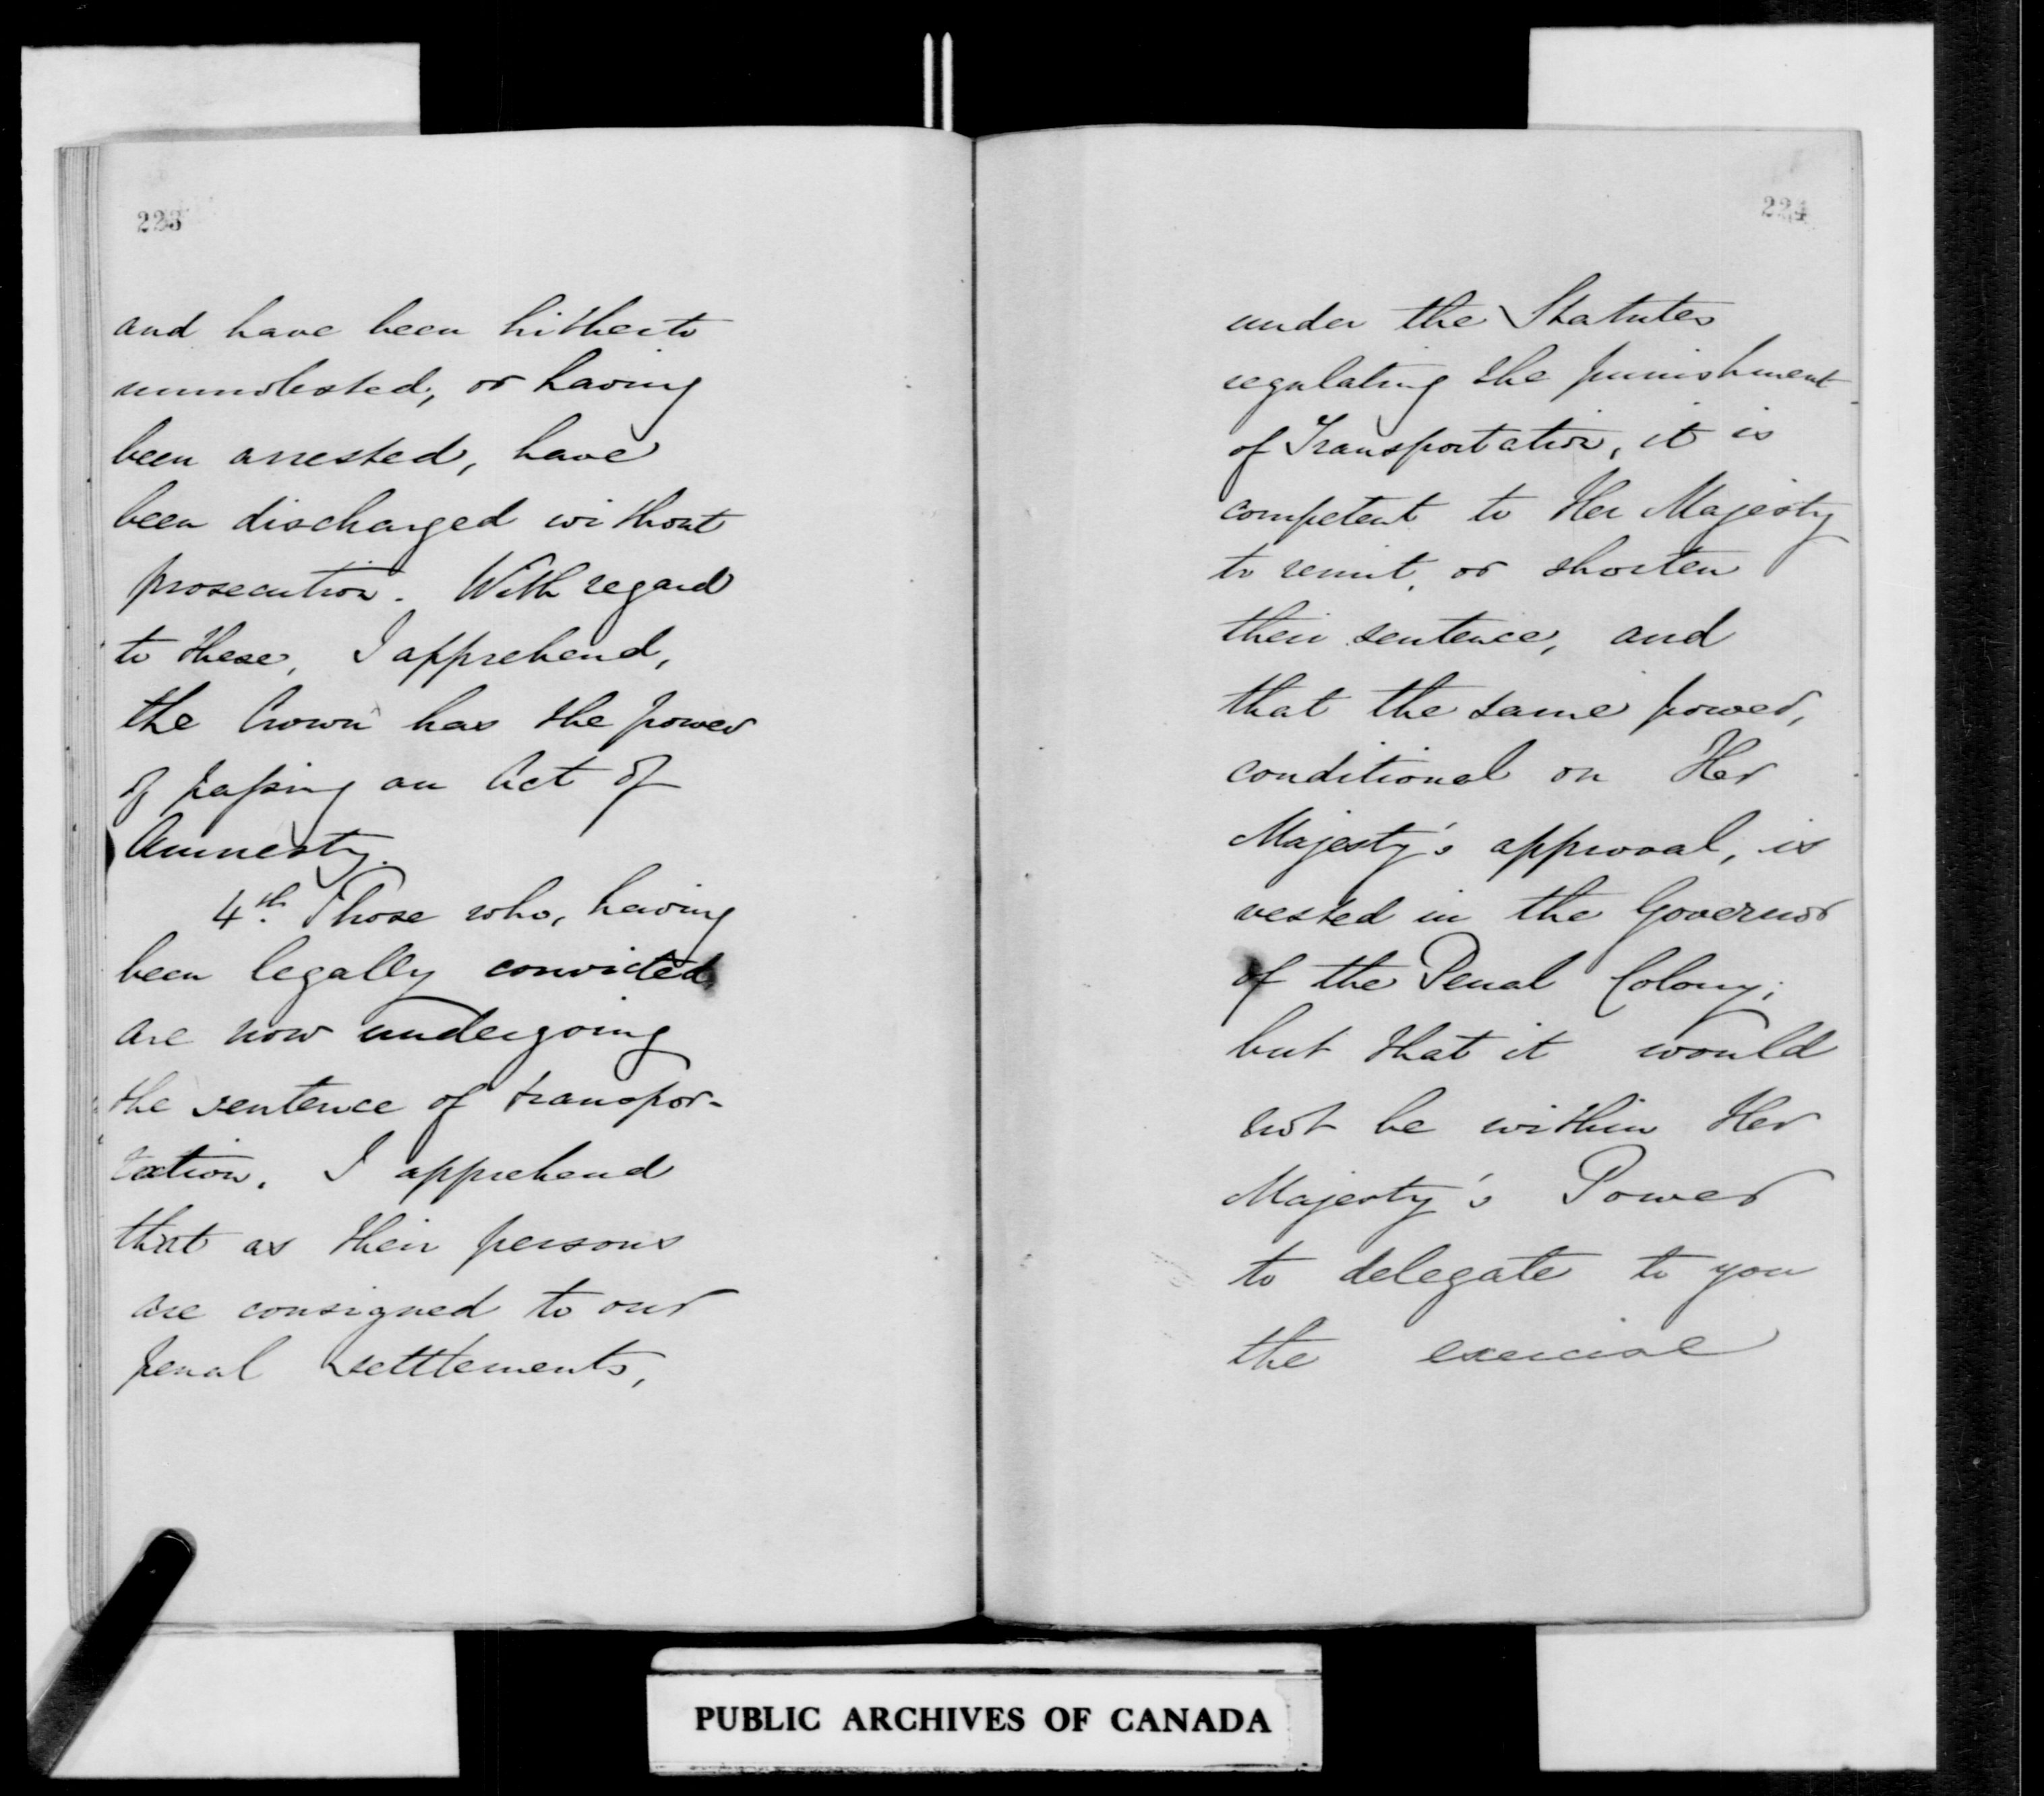 223
and have been hitherto
unmolested, or having
been arrested, have
been discharged without
prosecution. With regard
to these, I apprehend,
the Crown has the power
of passing an Act of
Amnesty.
4th. Those who, having
been legally convicted
are now undergoing
the sentence of transpor-
tation. I apprehend
that as their persons
are consigned to our
penal settlements,
224
under the Statutes
regulating the punishment
of Transportation, it is
competent to Her Majesty
to remit, or shorten
their sentence, and
that the same power,
conditional on Her
Majesty's approval, is
vested in the Governor
of the Penal Colony;
but that it would
not be within Her
Majesty's Power
to delegate to you
the exercise
PUBLIC ARCHIVES OF CANADA